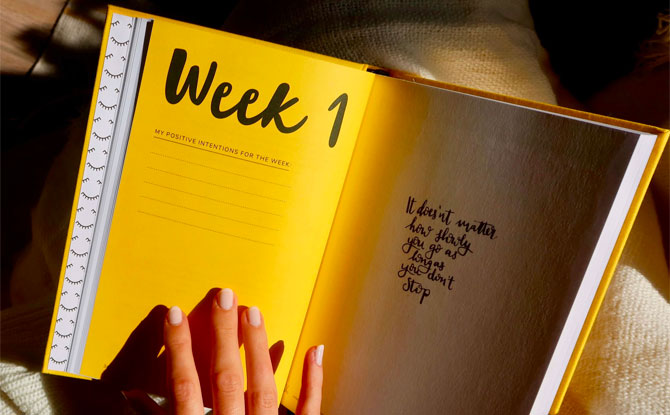 Week 1
MY POSITIVE INTENTIONS FOR THE WEEK
It doesn't matter
how slowly
you go as
long as
you don't
stop